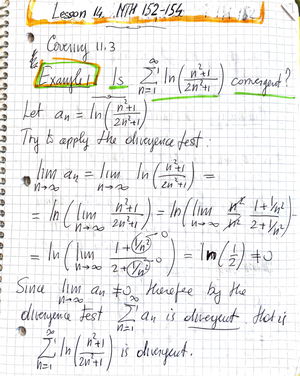 Lesson 14. MTH 152-154
Covering 11.3
Example 1 Is ∑_{n=1}^{∞} ln((n²+1)/(2n²+1)) convergent?
Let aₙ = ln((n²+1)/(2n²+1))
Try to apply the divergence test:
lim_{n→∞} aₙ = lim_{n→∞} ln((n²+1)/(2n²+1)) =
= ln(lim_{n→∞} (n²+1)/(2n²+1)) = ln(lim_{n→∞} n²/n² (1+1/n²)/(2+1/n²))
= ln(lim_{n→∞} (1+(1/n²)→0)/(2+(1/n²)→0)) = ln(1/2) ≠0
Since lim_{n→∞} aₙ ≠0, therefore by the
divergence test ∑_{n=1}^{∞} aₙ is divergent. that is
∑_{n=1}^{∞} ln((n²+1)/(2n²+1)) is divergent.